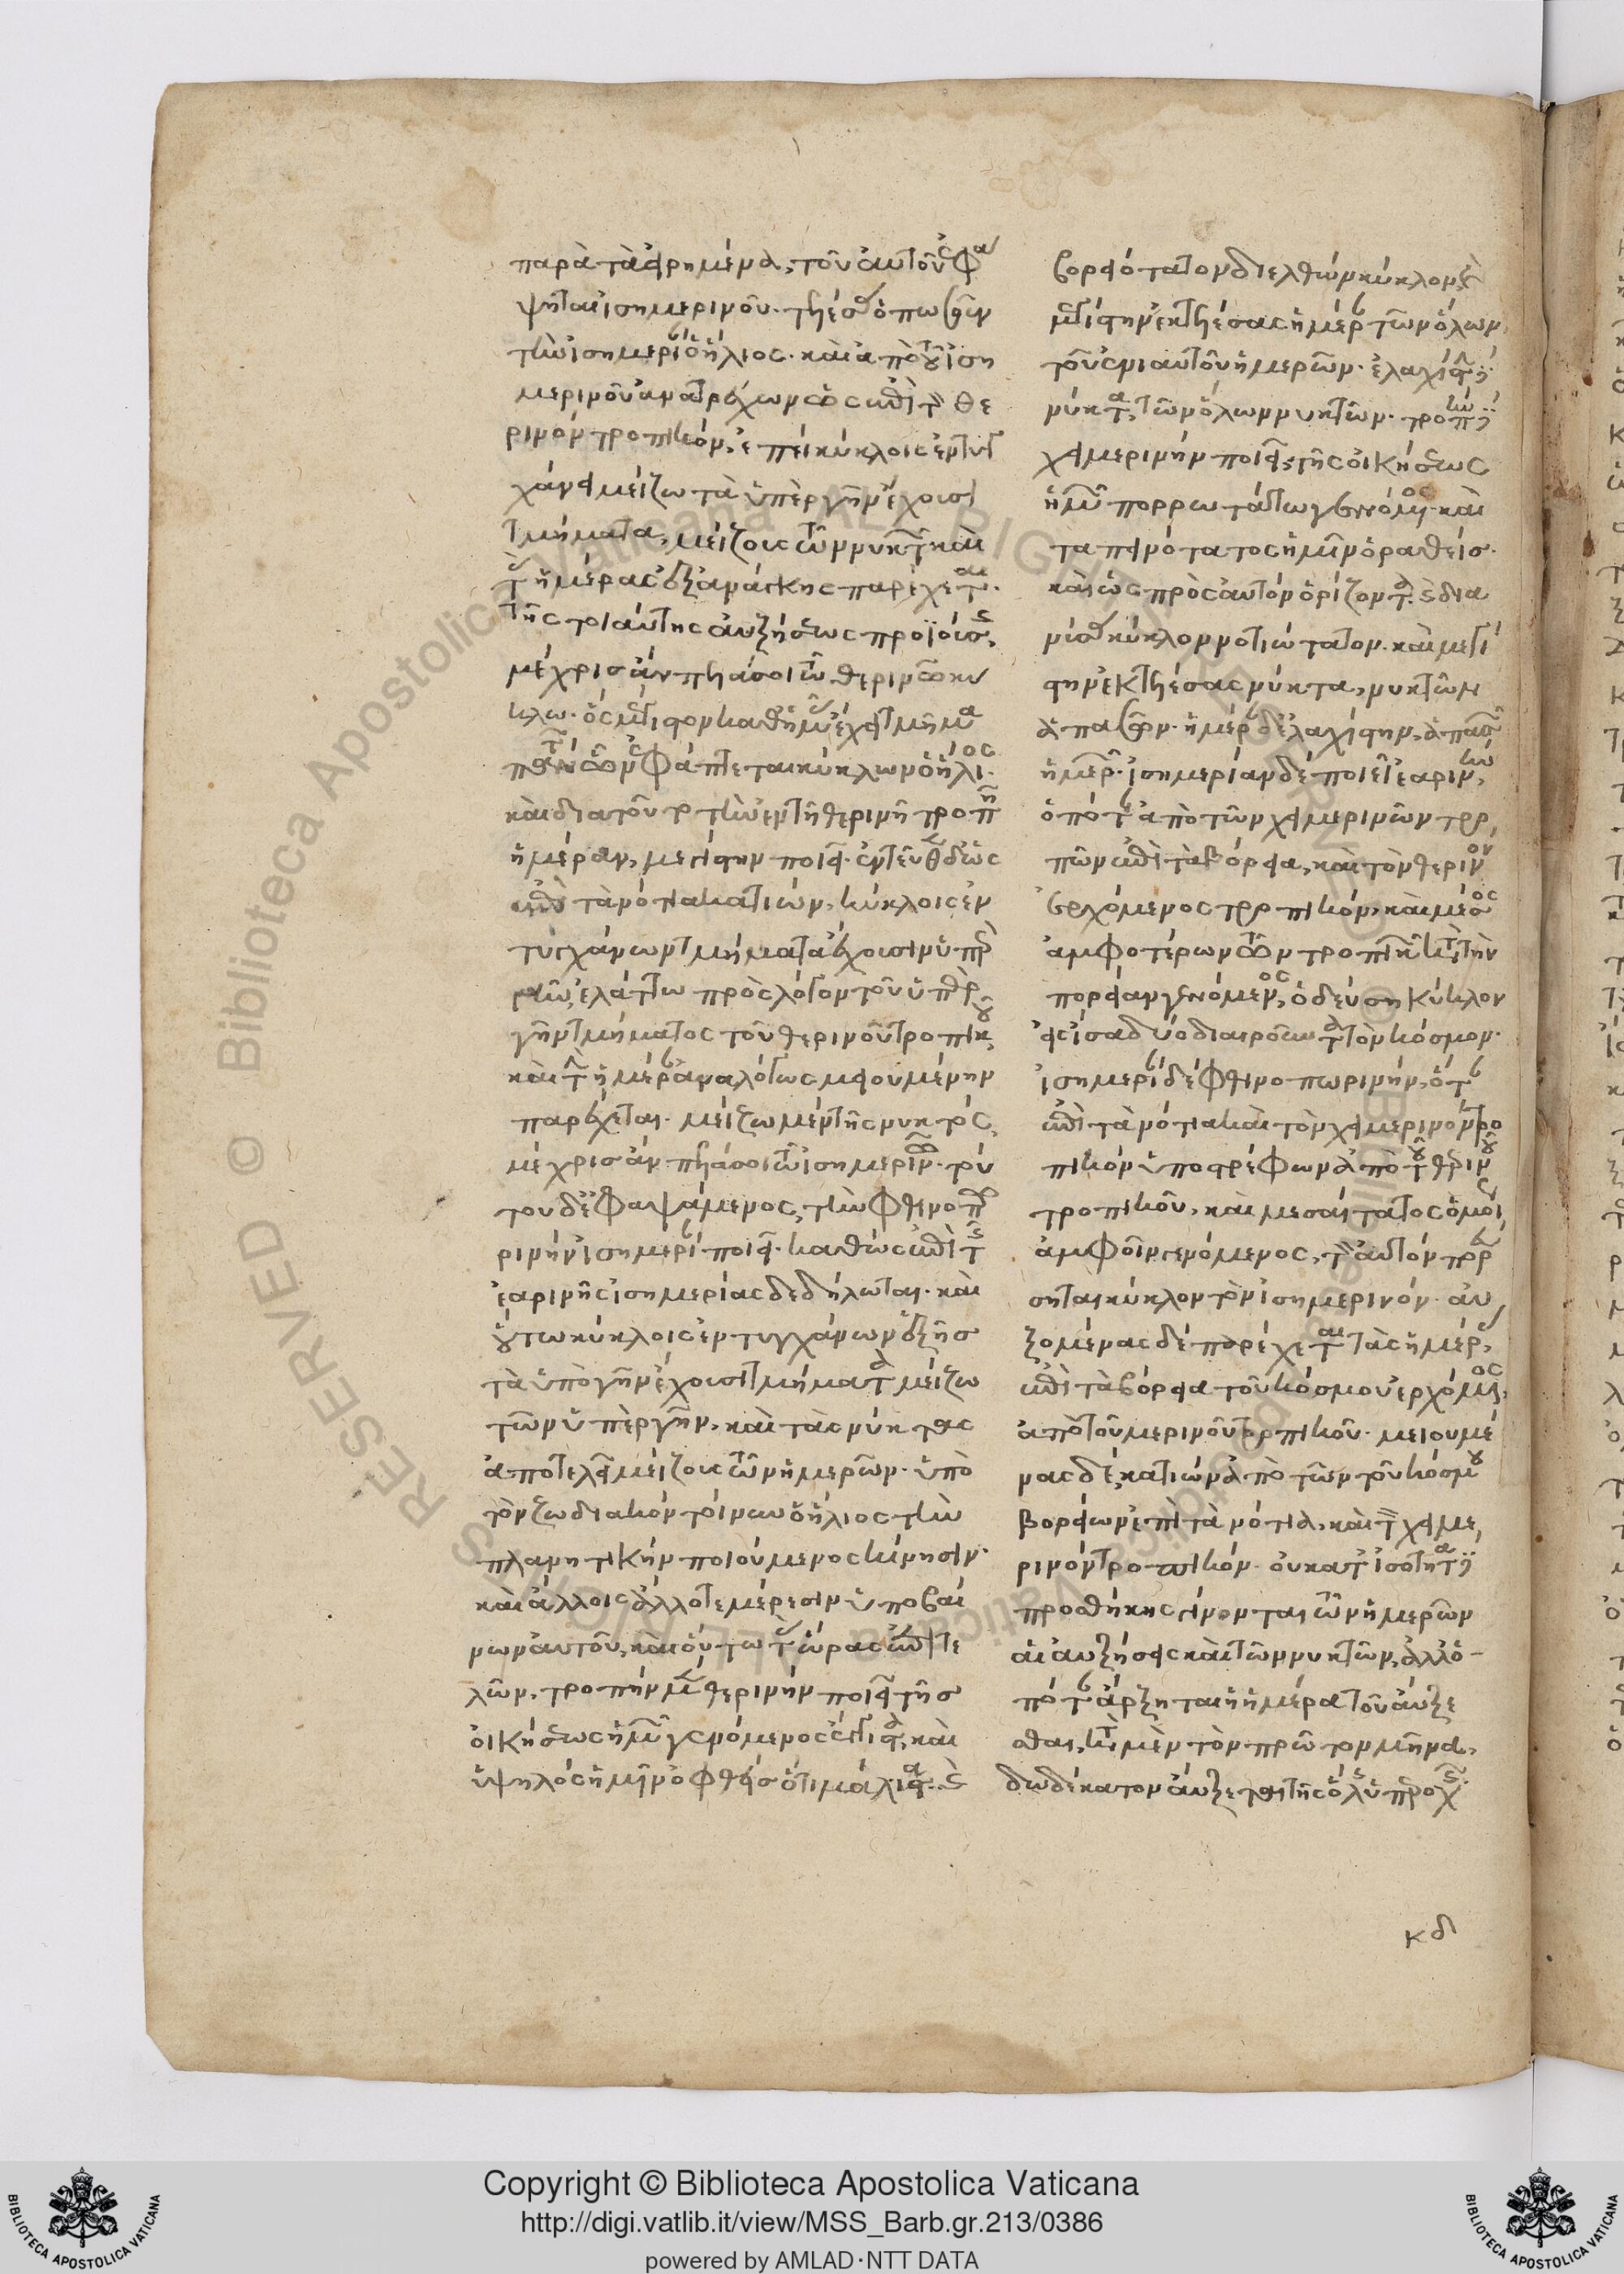 παρὰ τὰ εἰρημένα, τοῦ αὐτοῦ ἐφα
ψηται ἰσημερινοῦ.
τὴν ἰσημερί ὁ ἥλιος. καὶ ἀπὸ τοῦ ἰση
μερινοῦ ἀνατρέχων ὡς ἐπὶ τ θε
ρινὸν τροπικόν, ἐπεὶ κύκλοις ἐντυγ
χάνει μείζω τὰ ὑπὲρ γῆν ἔχουσι
τμήματα, μείζους τῶν νυκτ καὶ
τ ἡμέρας ἐξ ἀνάγκης παρέχεται.
τῆς τοιαύτης αὐξήσεως προϊούσ,
μέχρις ἂν πελάσοι τῶ θερινῶ κυ
κλω.
καὶ διὰ τοῦτο τὴν ἐν τῆ θερινῆ τροπῆ
ἡμέραν, μεγίστην ποιεῖ. ἐντεῦθεν δ ὡς
ἐπὶ τὰ νότια κατιών, κύκλοις ἐν
τυγχάνων τμήματα ἔχουσιν ὑπὲρ
γῆν, ἐλάττω πρὸς λόγον τοῦ ὑπὲρ
γῆν τμήματος τοῦ θερινοῦ τροπικοῦ,
καὶ τ ἡμέρ ἀναλόγως μειουμένην
παρέχεται. μείζω μέν τῆς νυκτός,
μέχρις ἂν πελάσοι τῶ ἰσημεριν. τού
του δ ἐφαψάμενος, τὴν φθινοπω
ρινὴν ἰσημερί ποιεῖ. καθὼς ἐπὶ τ
ἐαρινῆς ἰσημερίας δεδήλωται. καὶ
οὕτω κύκλοις ἐντυγχάνων ἑξῆς
τὰ ὑπὸ γῆν ἔχουσι τμήματα μείζω
τῶν ὑπὲρ γῆν, καὶ τὰς νύκτας
ἀποτελεῖ μείζους τῶν ἡμερῶν. ὑπὸ
τὸν ζωδιακὸν τοίνυν ὁ ἥλιος τὴν
πλανητικὴν ποιούμενος κίνησιν.
καὶ ἄλλοις ἄλλοτε μέρεσιν ὑποβαί
νων αὐτοῦ, καὶ οὕτω τ ὥρας ἀποτε
λῶν, τροπὴν μ θερινὴν ποιεῖ τῆς
οἰκήσεως ἡμῶν γενόμενος ἔγγιστα, καὶ
ὑψηλὸς ἡμῖν ὀφθεὶς ὅτι μάλιστα.
βορειότατον διελθὼν κύκλον
μεγίστην ἐκτελέσας ἡμέρ τῶν ὅλων
τοῦ ἐνιαυτοῦ ἡμερῶν. ἐλαχίστην
νύκτα, τῶν ὅλων νυκτῶν. τροπὴν
χειμερινὴν ποιεῖ, τῆς οἰκήσεως
ἡμῶν πορρωτάτω γενόμενος. καὶ
ταπεινότατος ἡμῖν ὁραθείς.
καὶ ὡς πρὸς αὐτὸν ὁρίζοντα. δια
νύσας κύκλον νοτιώτατον. καὶ μεγί
στην ἐκτελέσας νύκτα, νυκτῶν
ἁπασῶν. ἡμέρ δ ἐλαχίστην, ἁπασ
ἡμερ. ἰσημερίαν δὲ ποιεῖ ἐαρινὴν,
ὁπότ ἀπὸ τῶν χειμερινῶν τρο
πῶν ἐπὶ τὰ βόρεια, καὶ τὸν θερινὸν
ἐρχόμενος τροπικόν, καὶ μέσος
ἀμφοτέρων τῶν τροπικ κατὰ τὴν
πορείαν γενόμενος, ὁδεύση κύκλον
εἰς ἴσα δύο διαιροῦντα τὸν κόσμον.
ἰσημερί δὲ φθινοπωρινήν, ὅτ
ἐπὶ τὰ νότια καὶ τὸν χειμερινὸν τρο
πικὸν ὑποστρέφων ἀπὸ τοῦ θερινοῦ
τροπικοῦ, καὶ μεσαίτατος ὁμοί
ἀμφοῖν γενόμενος, τ αὐτὸν πορεύ
σηται κύκλον τὸν ἰσημερινόν. αὐ
ξομένας δὲ παρέχεται τὰς ἡμέρ,
ἐπὶ τὰ βόρεια τοῦ κόσμου ἐρχόμενος,
ἀπὸ τοῦ μερινοῦ τροπικοῦ. μειουμέ
νας δέ, κατιὼν ἀπὸ τῶν τοῦ κόσμου
βορείων ἐπὶ τὰ νότια, καὶ τ χειμε
ρινὸν τροπικόν. οὐ κατ ἰσότητα
προσθήκης γίνονται τῶν ἡμερῶν
αἱ αὐξήσεις καὶ τῶν νυκτῶν, ἀλλ ὁ-
πότ ἄρξηται ἡ ἡμέρα τοῦ αὔξε
σθαι, κατὰ μὲν τὸν πρῶτον μῆνα,
δωδέκατον αὔξεται τῆς ὅλ ὑπεροχ
κδ
Copyright © Biblioteca Apostolica Vaticana
http://digi.vatlib.it/view/MSS_Barb.gr.213/0386
powered by AMLAD·NTT DATA
BIBLIOTECA APOSTOLICA VATICANA
BIBLIOTECA APOSTOLICA VATICANA